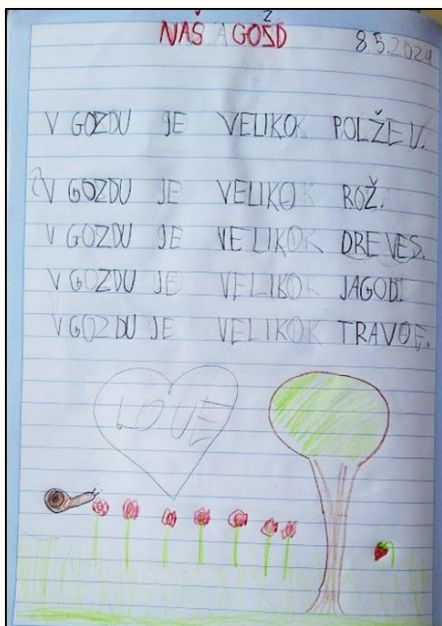 NAŠ GOZD 8.5.2024
V GOZDU JE VELIKO POLŽEV.
V GOZDU JE VELIKO ROŽ.
V GOZDU JE VELIKO DREVES.
V GOZDU JE VELIKO JAGODI
V GOZDU JE VELIKO
LOVE